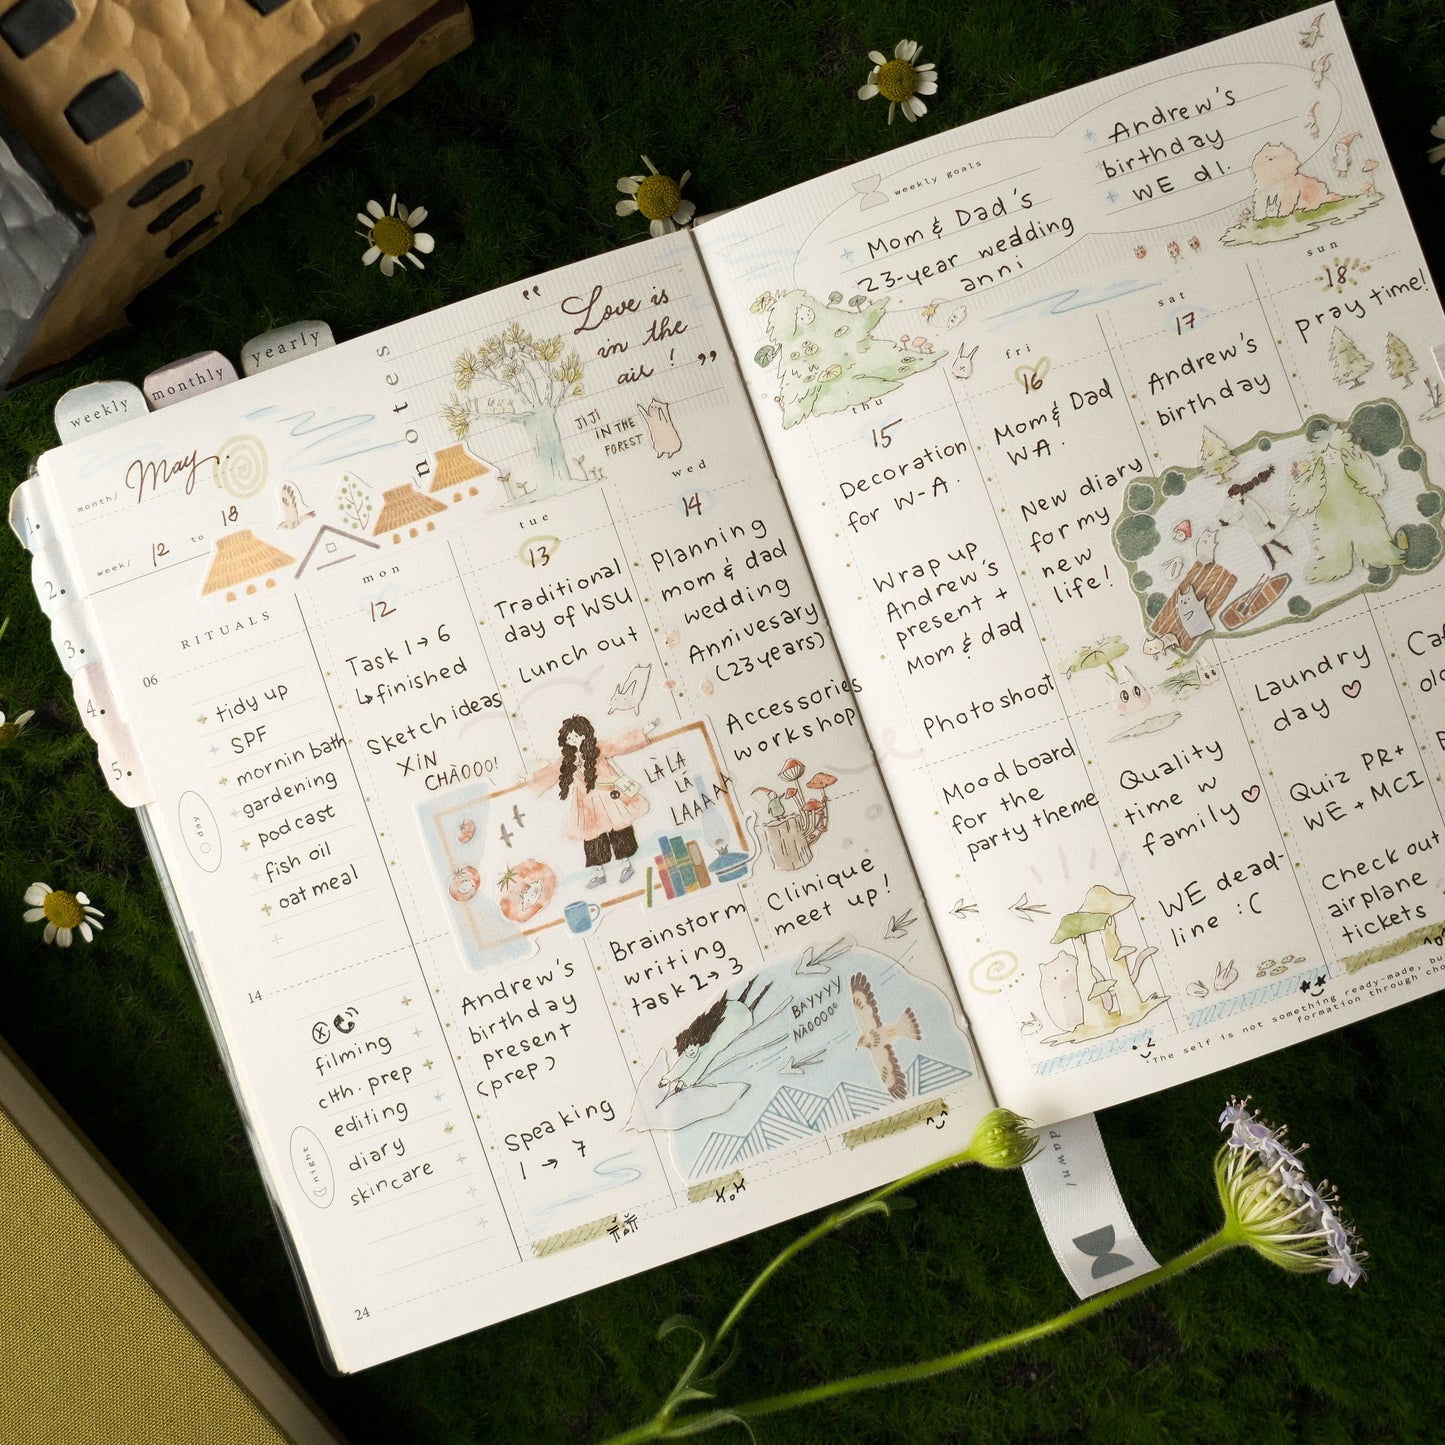 weekly
monthly
yearly
1.
2.
3.
4.
5.
month/ May.
week/ 12 to 18
notes
" Love is
in the
air ! "
JIJI
IN THE
FOREST
RITUALS
06
day
tidy up
SPF
mornin bath
gardening
podcast
fish oil
oatmeal
14
night
filming
clth. prep
editing
diary
skincare
24
mon
12
Task 1 → 6
↳ finished
Sketch ideas
XIN
CHÀOOO!
Andrew's
birthday
present
(prep)
Speaking
1 → 7
tue
13
Traditional
day of WSU
Lunch out
LÀ LA
LÁ
LAAAA
Brainstorm
writing
task 2 → 3
wed
14
Planning
mom & dad
wedding
Annivesary
(23 years)
Accessories
workshop
Clinique
meet up!
BAYYYY
NÀOOOO
weekly goals
+ Mom & Dad's
23-year wedding
anni
+ Andrew's
birthday
+ WE dl.
thu
15
Decoration
for W-A.
Wrap up
Andrew's
present +
Mom & dad
Photoshoot
Mood board
for the
party theme
fri
16
Mom & Dad
WA.
New diary
for my
new
life!
Quality
time w
family ♡
WE dead-
line :(
sat
17
Andrew's
birthday
Laundry
day ♡
Quiz PR+
WE + MCI
Check out
airplane
tickets
sun
18
pray time!
"The self is not something ready-made, but
formation through cho
dawn/